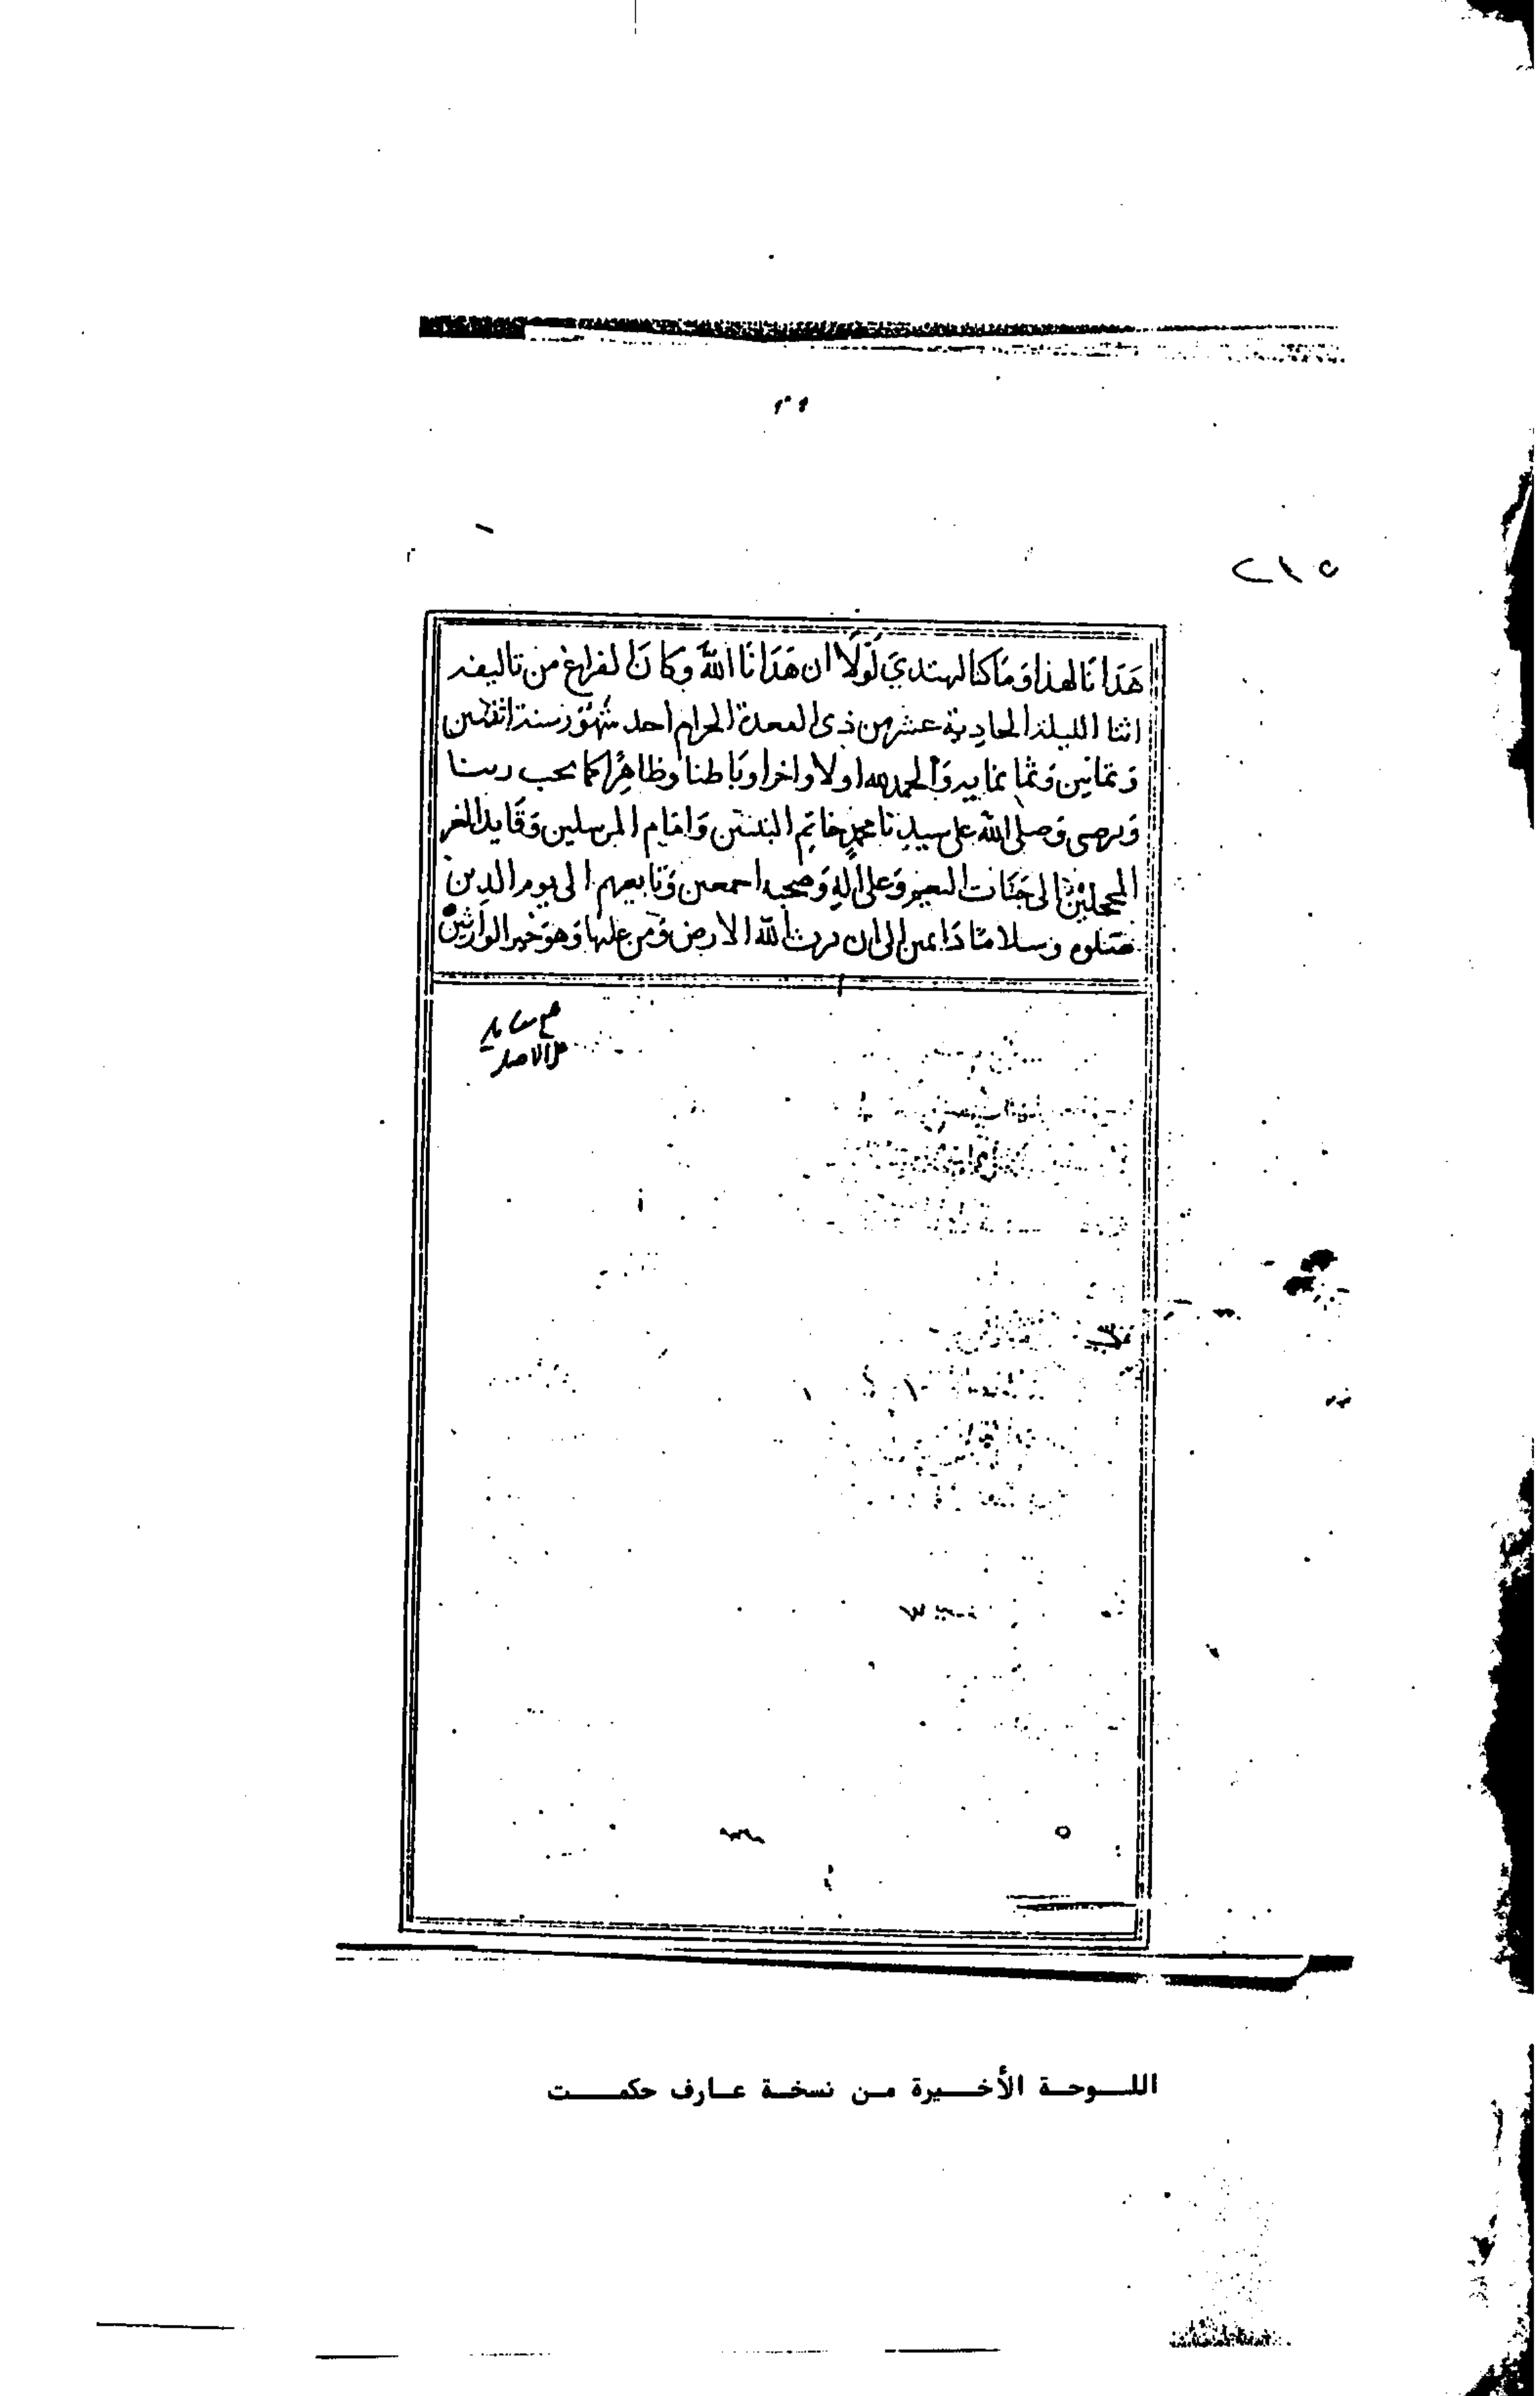 ٢١٥
هَدَانَا لهذا وَمَا كنا لنهتدي لَوْلَا ان هَدَانَا اللهُ وكانَ الفراغ من تاليفه
اثنا الليلة الحادية عشر من ذى القعدة الحرام احد شهور سنة اثنتين
وَثمانين وَثمانمايه وَالحمد لله اولا واخرا وبَاطنا وظاهرًا كما يحب ربنا
وَيرضى وَصلى الله على سيدنا محمدٍ خاتم النبيين وَامَام المرسلين وَقَايد الغر
المحجلين الى جَنَات النعيم وَعلى الهِ وَصحبه اجمعين وَتابعيهم الى يوم الدين
صَلوه وسلامًا دَايمين الى ان يرث الله الارض وَمن عليها وَهو خير الوَارثين
على الاصل
اللوحة الأخيرة من نسخة عارف حكمت